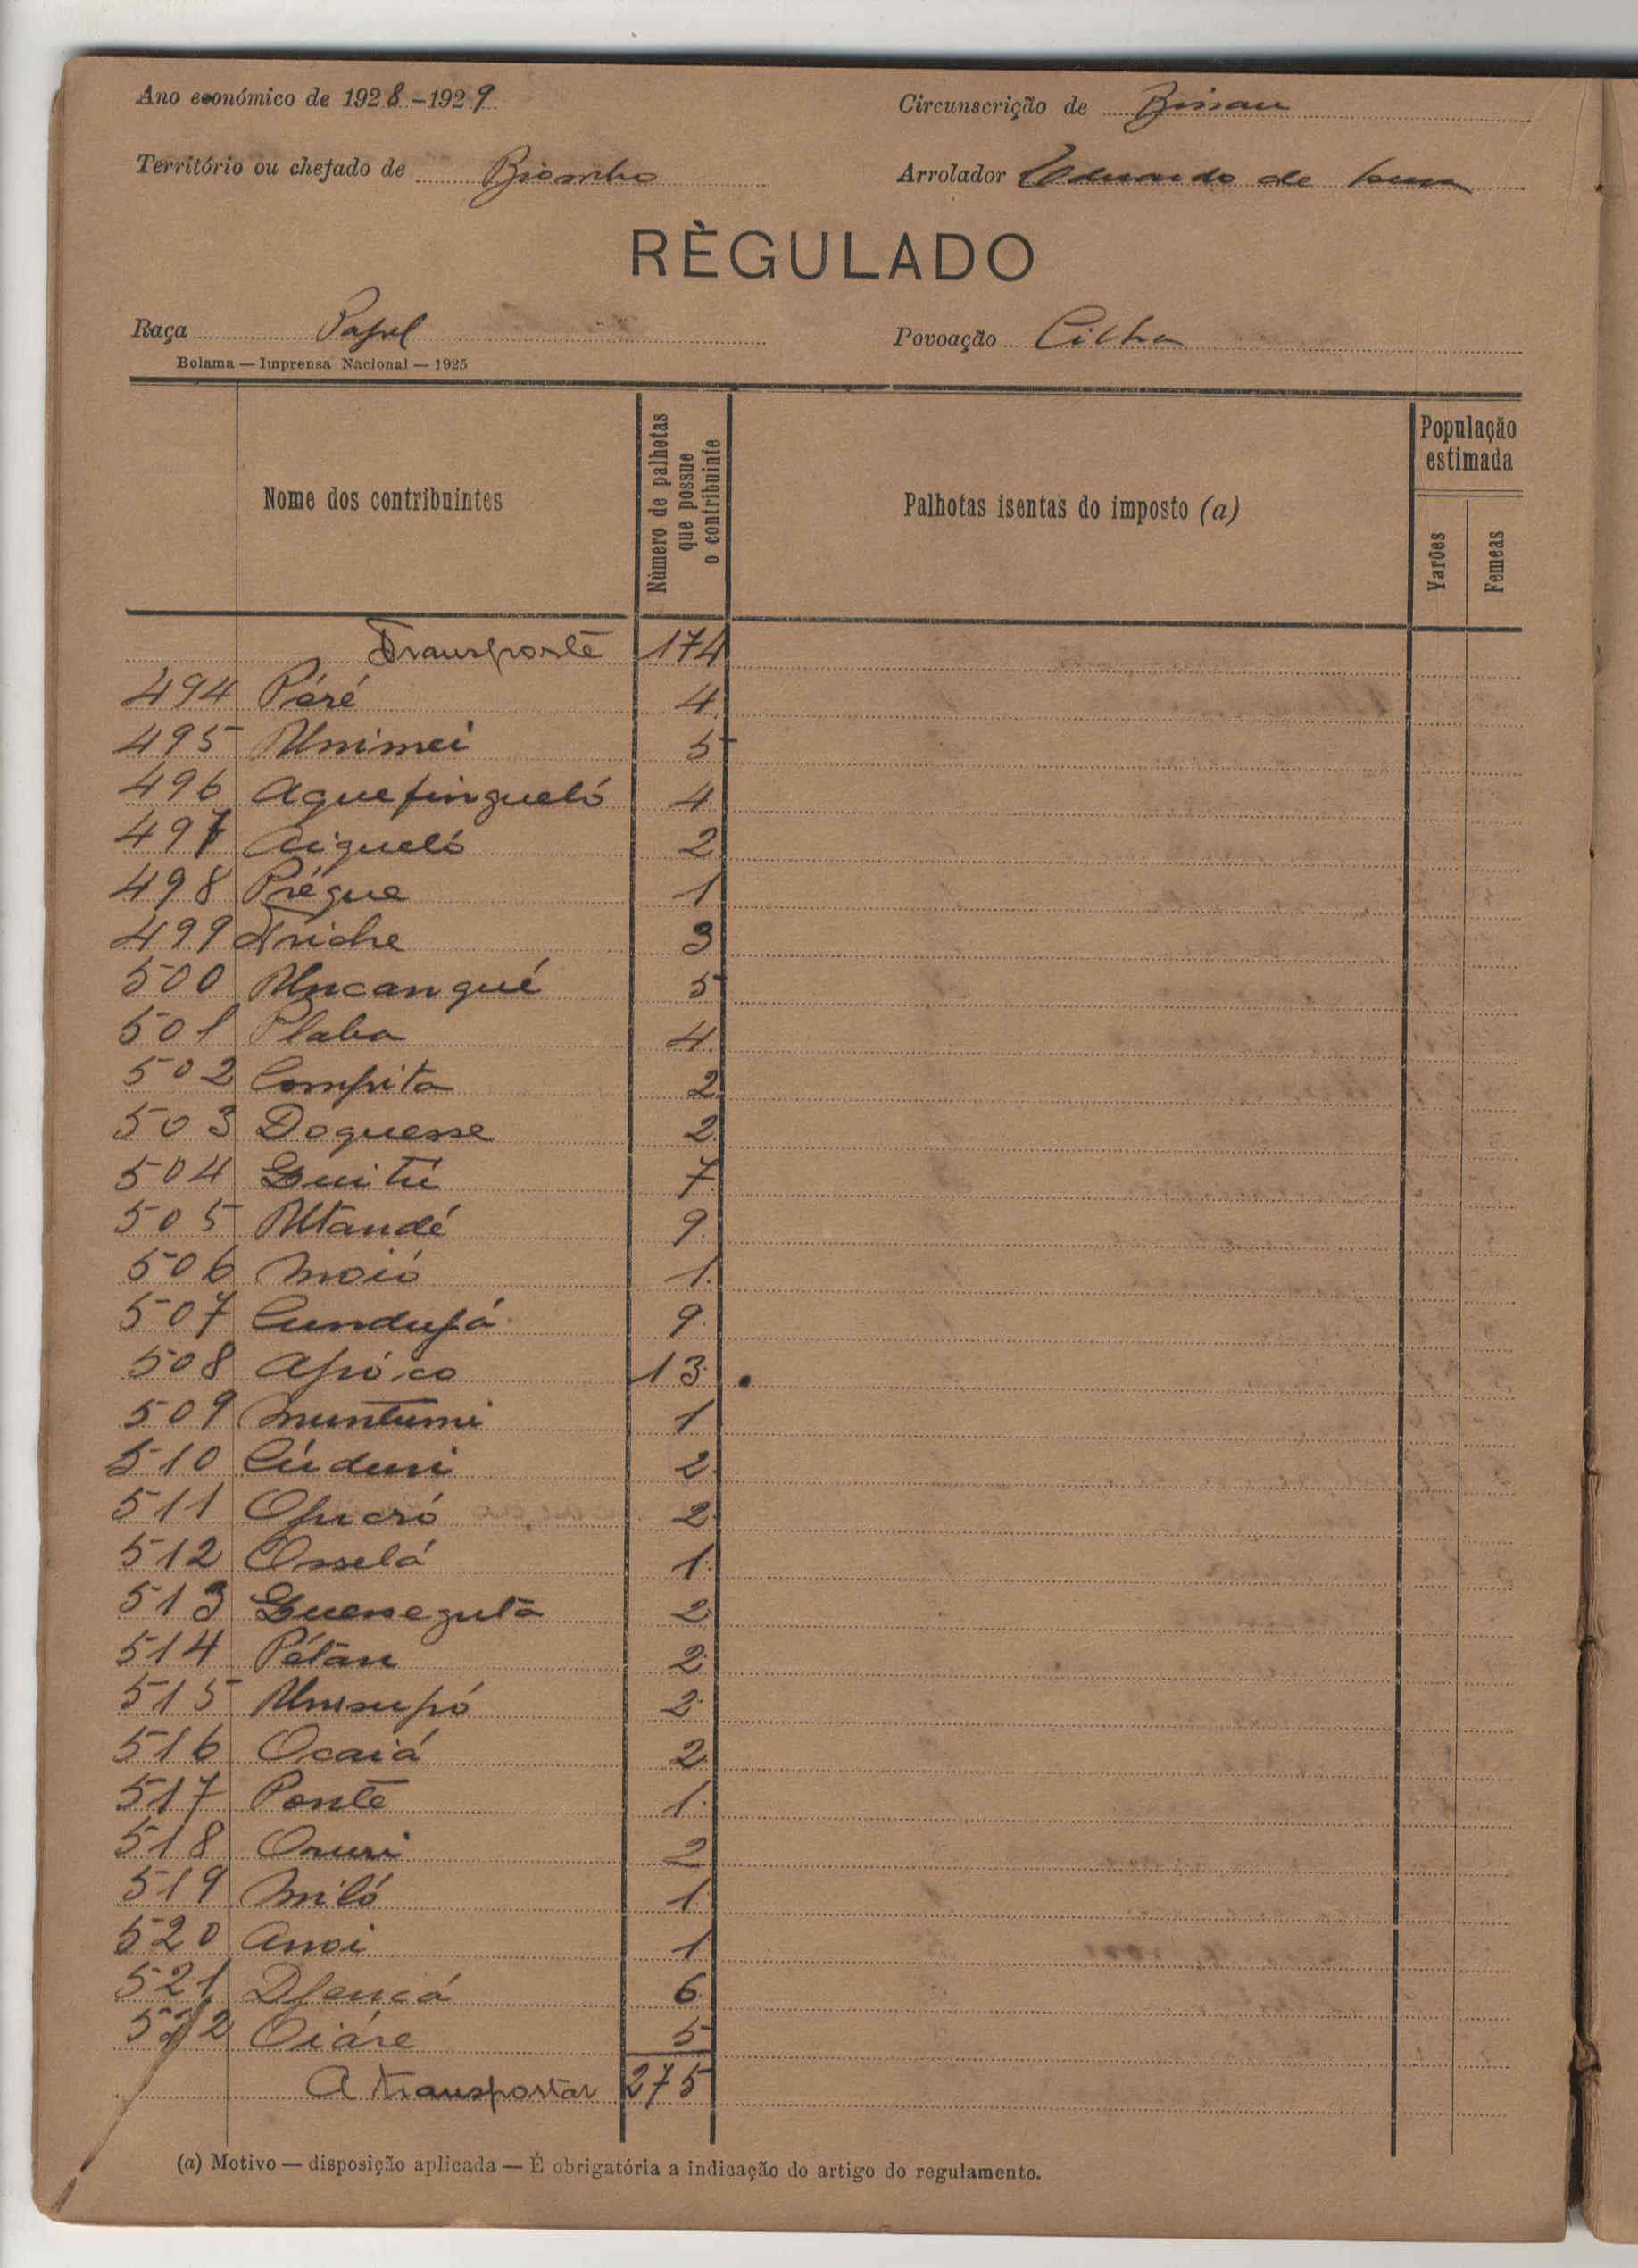 Ano económico de 1928-1929
Circunscrição de Bissau
Território ou chefado de Biombo
Arrolador Eduardo de Sousa
RÈGULADO
Raça Papel
Povoação Cilha
Bolama — Imprensa Nacional — 1925
Nome dos contribuintes
Número de palhotas que possue o contribuinte
Palhotas isentas do imposto (a)
População estimada
Varões
Femeas
Transporte 174
494 Péré 4
495 Unimei 5
496 Aquefingueló 4
497 Aigueló 2
498 Prégue 1
499 Triche 3
500 Uncangué 5
501 Plaba 4
502 Compita 2
503 Doquesse 2
504 Guitú 7
505 Utandé 9
506 Moió 1
507 Cundupá 9
508 Apóco 13
509 Muntumi 1
510 Cúduri 2
511 Opucró 2
512 Osselá 1
513 Guessegutá 2
514 Pétan 2
515 Unisupó 2
516 Ocaiá 2
517 Ponte 1
518 Ouri 2
519 Miló 1
520 Anoi 1
521 6
522 Oiáre 5
A transportar 275
(a) Motivo — disposição aplicada — É obrigatória a indicação do artigo do regulamento.